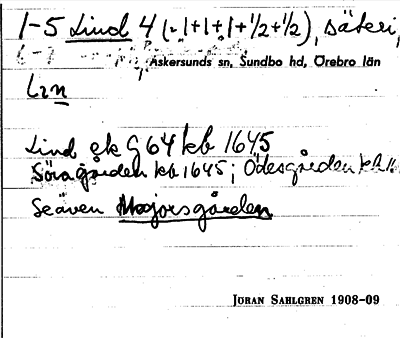 1-5 Lind 4 (-1+1+1+1/2+1/2), säteri,
Askersunds sn, Sundbo hd, Örebro län
Lın
Lind ek G64 kb 1645
Söra gården kb 1645; Ödesgården kb
Se även Majorsgården
JÖRAN SAHLGREN 1908-09